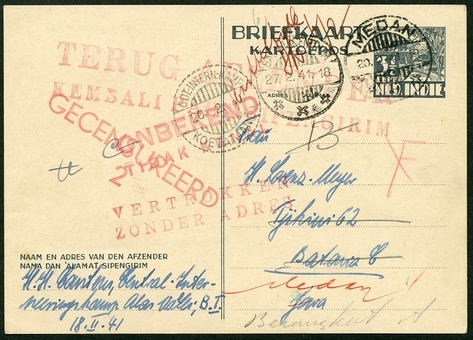 BRIEFKAART
KARTOEPOS
MEDAN
NED. INDIE
TERUG AFZENDER
KEMBALI SIPENGIRIM
INTERNEERINGSKAMP
20.2
KOETATJANE
27.2.41.18
ADRES
ONBEKEND
GECENSUREERD
TIDAK
2
VERTROKKEN
ZONDER ADRES
Frau
H. Lorenz-Meyer
Tjikini 62
Batavia C
Medan
Java
Berangkat
NAAM EN ADRES VAN DEN AFZENDER
NAMA DAN ALAMAT SIPENGIRIM
Central-Inter-
neeringskamp Alas Vallei, B. I.
18.II.41